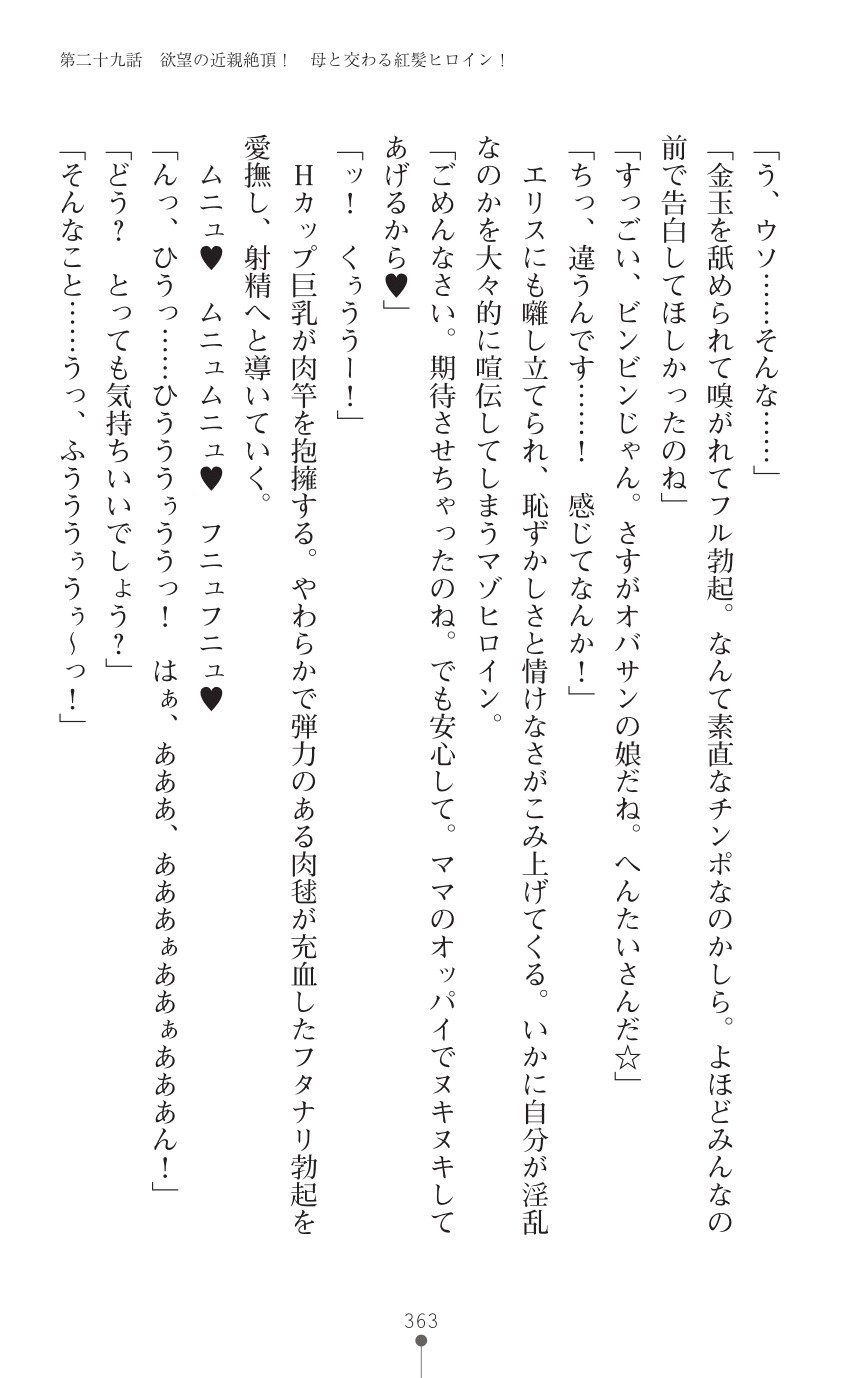 第二十九話　欲望の近親絶頂！　母と交わる紅髪ヒロイン！
「う、ウソ……そんな……」
「金玉を舐められて嗅がれてフル勃起。なんて素直なチンポなのかしら。よほどみんなの
前で告白してほしかったのね」
「すっごい、ビンビンじゃん。さすがオバサンの娘だね。へんたいさんだ☆」
「ちっ、違うんです……！　感じてなんか！」
　エリスにも囃し立てられ、恥ずかしさと情けなさがこみ上げてくる。いかに自分が淫乱
なのかを大々的に喧伝してしまうマゾヒロイン。
「ごめんなさい。期待させちゃったのね。でも安心して。ママのオッパイでヌキヌキして
あげるから♥」
「ッ！　くぅううー！」
　Hカップ巨乳が肉竿を抱擁する。やわらかで弾力のある肉毬が充血したフタナリ勃起を
愛撫し、射精へと導いていく。
　ムニュ♥　ムニュムニュ♥　フニュフニュ♥
「んっ、ひうっ……ひうううぅううっ！　はぁ、あああ、あああぁああぁあああん！」
「どう？　とっても気持ちいいでしょう？」
「そんなこと……うっ、ふうううぅうぅ～っ！」
363